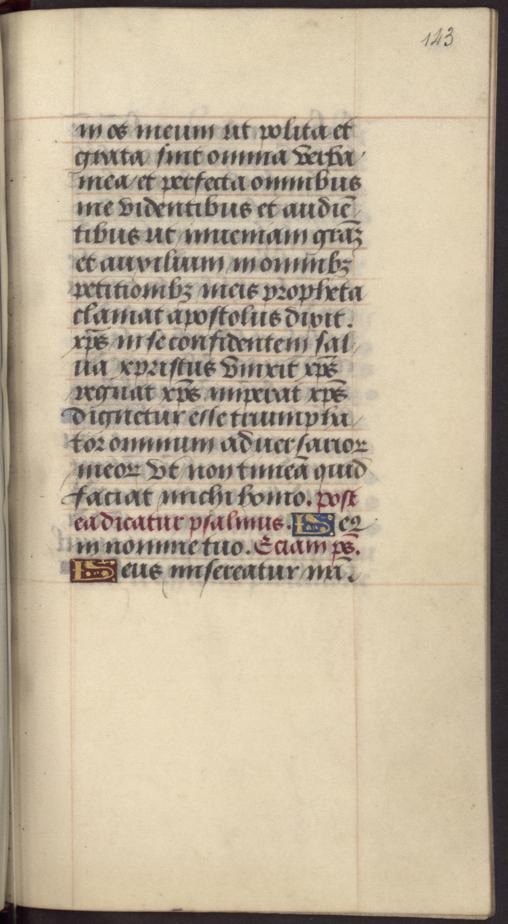 143
in os meum ut polita et
grata sint omnia verba
mea et perfecta omnibus
me videntibus et audiē
tibus ut inueniam graꝫ
et auxilium in omnibꝫ
petitionibꝫ meis propheta
clamat apostolus dixit.
xp̄s in se confidentem sal
ua xpristus vinxit xp̄s
regnat xp̄s imperat xp̄s
dignetur esse triumpha
tor omnium aduersarioꝝ
meoꝝ vt non timeā quid
faciat michi homo. post
ea dicatur psalmus. Deꝰ
in nomine tuo. Eciam ps̄.
Deus misereatur nr̄i.